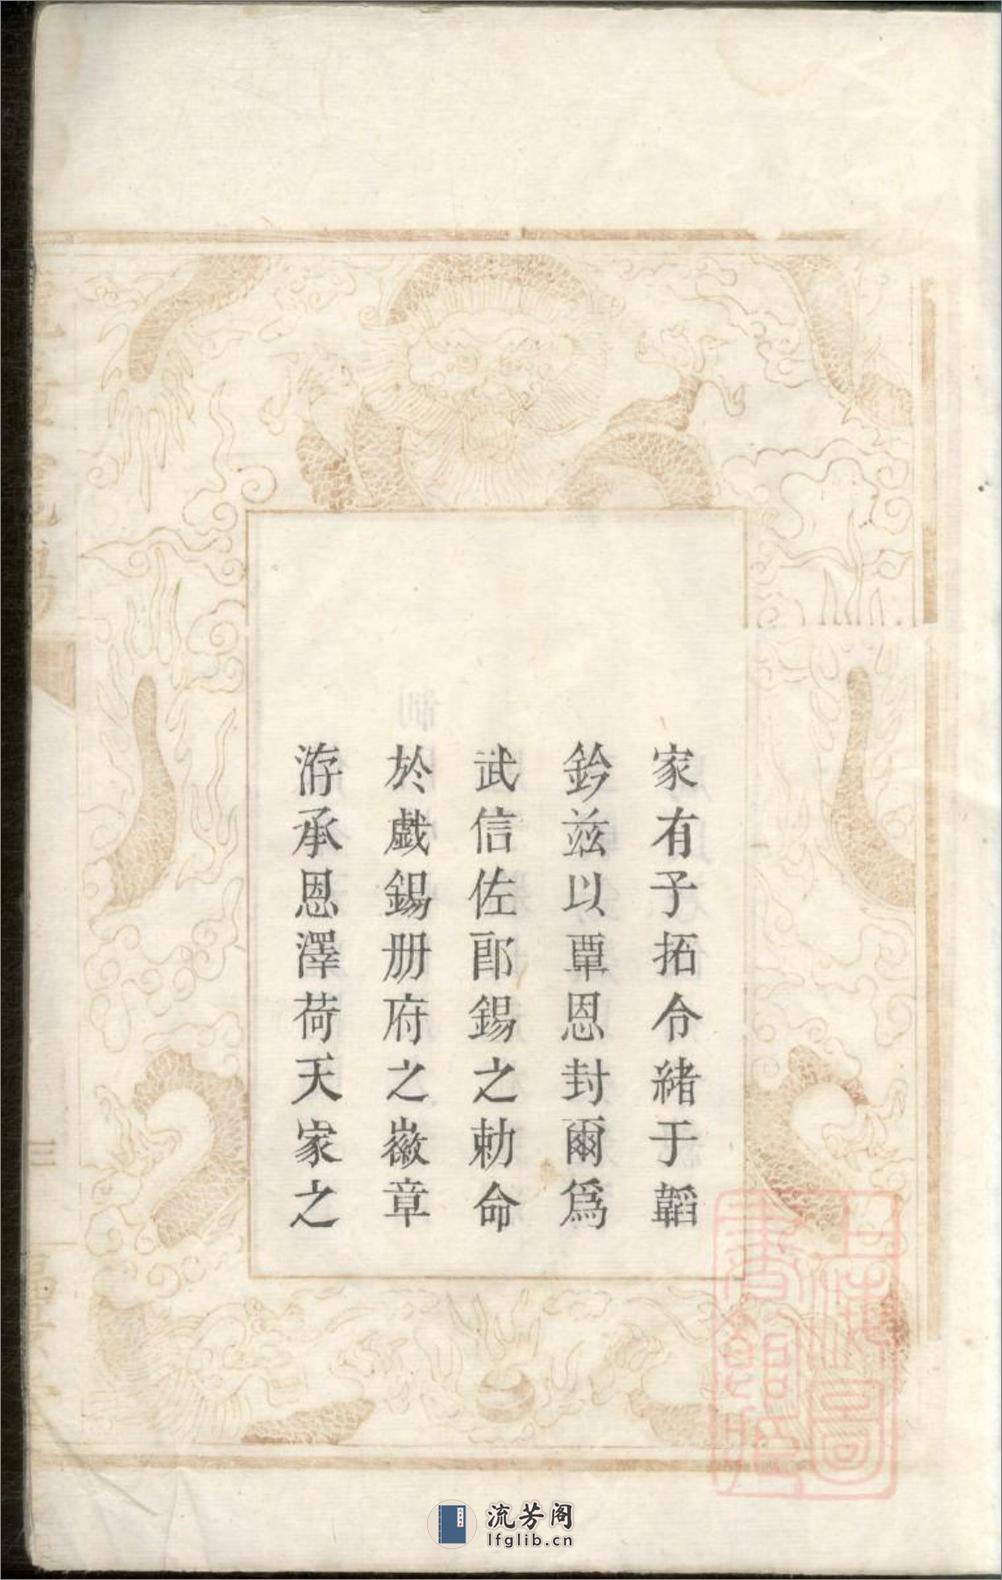 家有子拓令緒于韜
鈐茲以覃恩封爾爲
武信佐郎錫之勅命
於戲錫册府之徽章
洊承恩澤荷天家之
上海圖書館藏
流芳阁
lfglib.cn